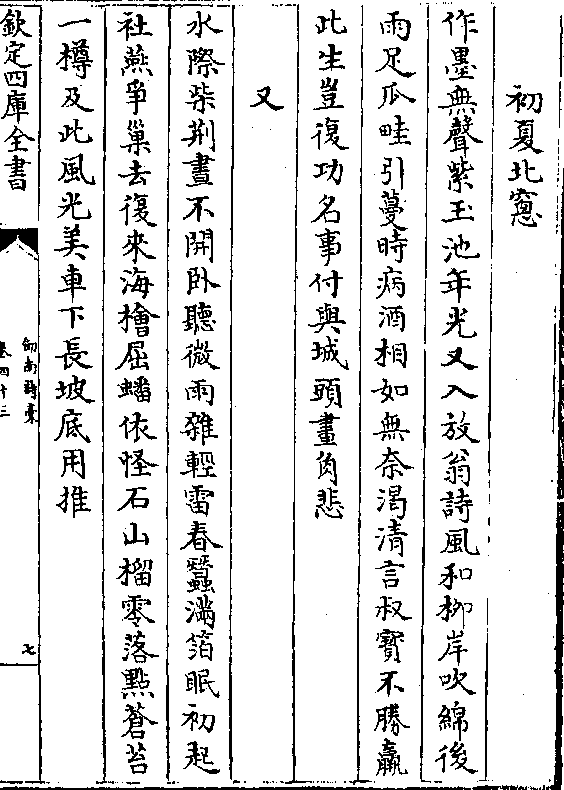 初夏北窻
作墨無聲紫玉池年光又入放翁詩風和柳岸吹綿後
雨足瓜畦引蔓時病酒相如無奈渴清言叔寳不勝羸
此生豈復功名事付與城頭畫角悲
又
水際柴荆晝不開卧聽微雨雜輕雷春蠶滿箔眠初起
社燕爭巢去復來海檜屈蟠依怪石山榴零落點蒼苔
一樽及此風光美車下長坡底用推
欽定四庫全書
劍南詩稾
卷四十三
七